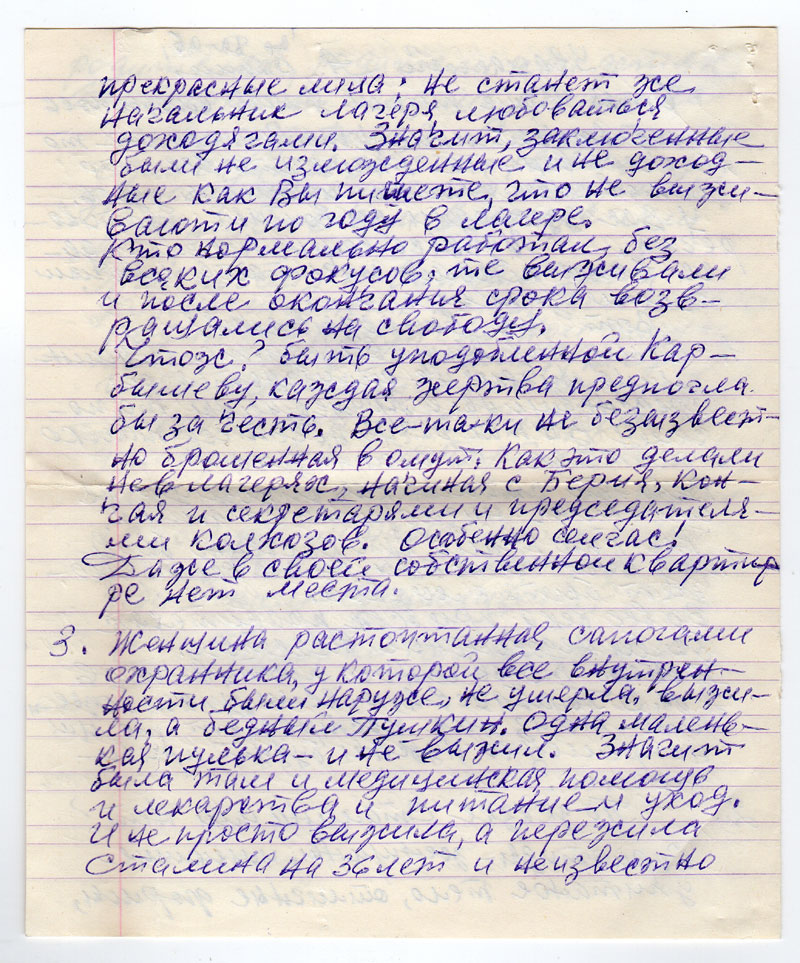 прекрасные тела: не станет же
начальник лагеря любоваться
доходягами. Значит, заключенные
были не изможденные и не доход-
ные как Вы пишете, что не выжи-
вают и по году в лагере.
Кто нормально работал, без
всяких фокусов, те выживали
и после окончания срока возв-
ращались на свободу.
Что ж? быть уподобленной Кар-
бышеву, каждая жертва предпочла
бы за честь. Все-таки не безызвест-
но брошенная в омут. Как это делали
не в лагерях, начиная с Берия, кон-
чая и секретарями и председателя-
ми колхозов. Особенно сейчас!
Даже в своей собственной кварти-
ре нет места.
3. Женщина растоптанная сапогами
охранника, у которой все внутрен-
ности были наруже, не умерла, выжи-
ла, а бедный Пушкин. Одна малень-
кая пулька - и не выжил. Значит
была там и медицинская помощь
и лекарства и питание и уход.
И не просто выжила, а пережила
Сталина на 36 лет и неизвестно